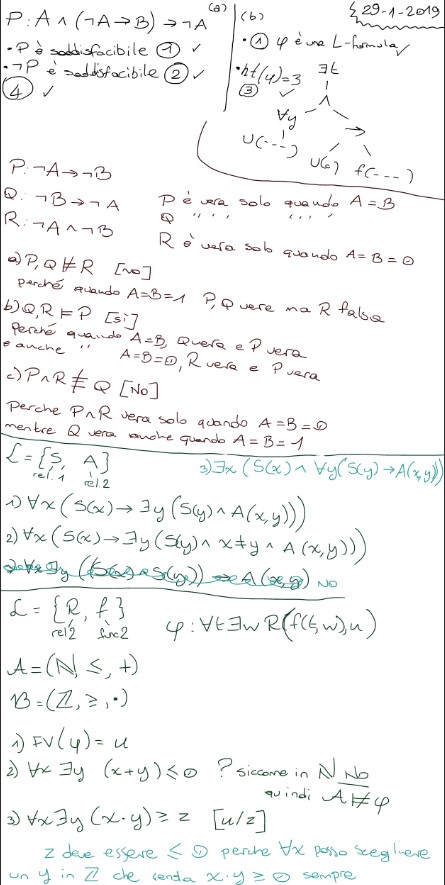 29-1-2019
P: A ∧ (¬A → B) → ¬A (a)
• P è soddisfacibile ① ✓
• ¬P è soddisfacibile ② ✓
④ ✓
(b)
• ① φ è una L-formula ✓
• ht(φ)=3 ③ ✓
∃t
∧
∀y →
U(---) U(c) f(----)
P: ¬A → ¬B
Q: ¬B → ¬A
R: ¬A ∧ ¬B
P è vera solo quando A = B
Q " " " " "
R è vera solo quando A = B = 0
a) P, Q ⊭ R [no]
perché quando A=B=1 P, Q vere ma R falsa
b) Q, R ⊨ P [sì]
Perché quando A=B, Q vera e P vera
e anche " A=B=0, R vera e P vera
c) P ∧ R ≢ Q [No]
Perche P ∧ R vera solo quando A = B = 0
mentre Q vera anche quando A = B = 1
L = {S, A}
rel.1 rel.2
3) ∃x (S(x) ∧ ∀y (S(y) → A(x,y))
1) ∀x (S(x) → ∃y (S(y) ∧ A(x,y)))
2) ∀x (S(x) → ∃y (S(y) ∧ x≠y ∧ A(x,y)))
NO
L = {R, f}
rel2 func2
φ: ∀t ∃w R(f(t,w),u)
A = (N, ≤, +)
B = (Z, ≥, ·)
1) FV(φ) = u
2) ∀x ∃y (x+y) ≤ 0 ? siccome in N No
quindi A ⊭ φ
3) ∀x ∃y (x·y) ≥ z [u/z]
z deve essere ≤ 0 perche ∀x posso scegliere
un y in Z che renda x·y ≥ 0 sempre